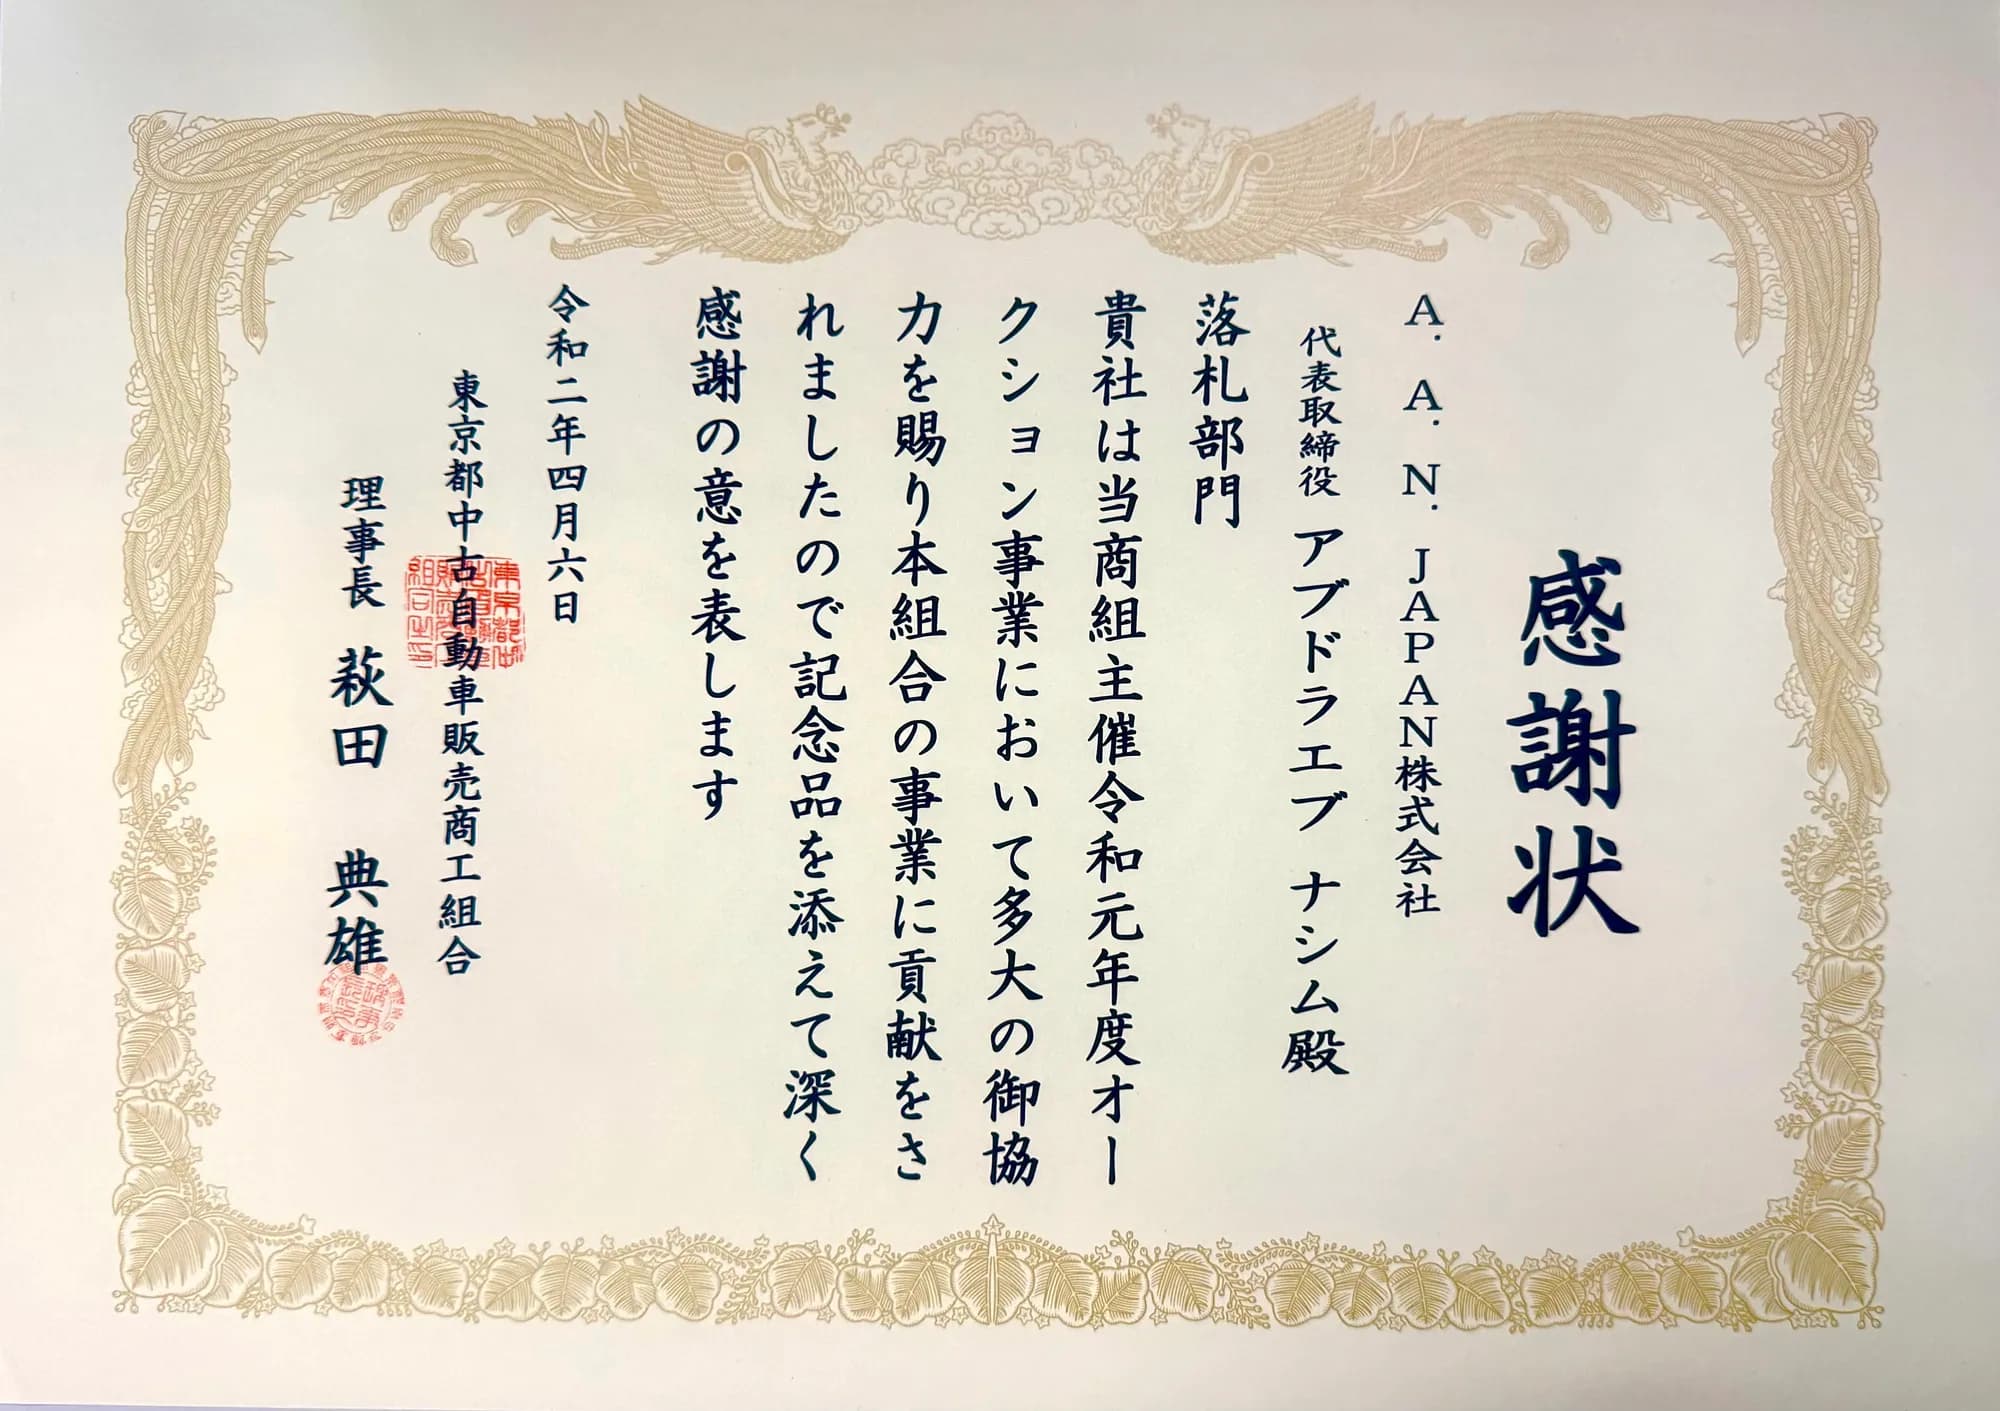 感謝状
A. A. N. JAPAN株式会社
代表取締役 アブドラエブ ナシム殿
落札部門
貴社は当商組主催令和元年度オー
クション事業において多大の御協
力を賜り本組合の事業に貢献をさ
れましたので記念品を添えて深く
感謝の意を表します
令和二年四月六日
東京都中古自動車販売商工組合
理事長 萩田 典雄